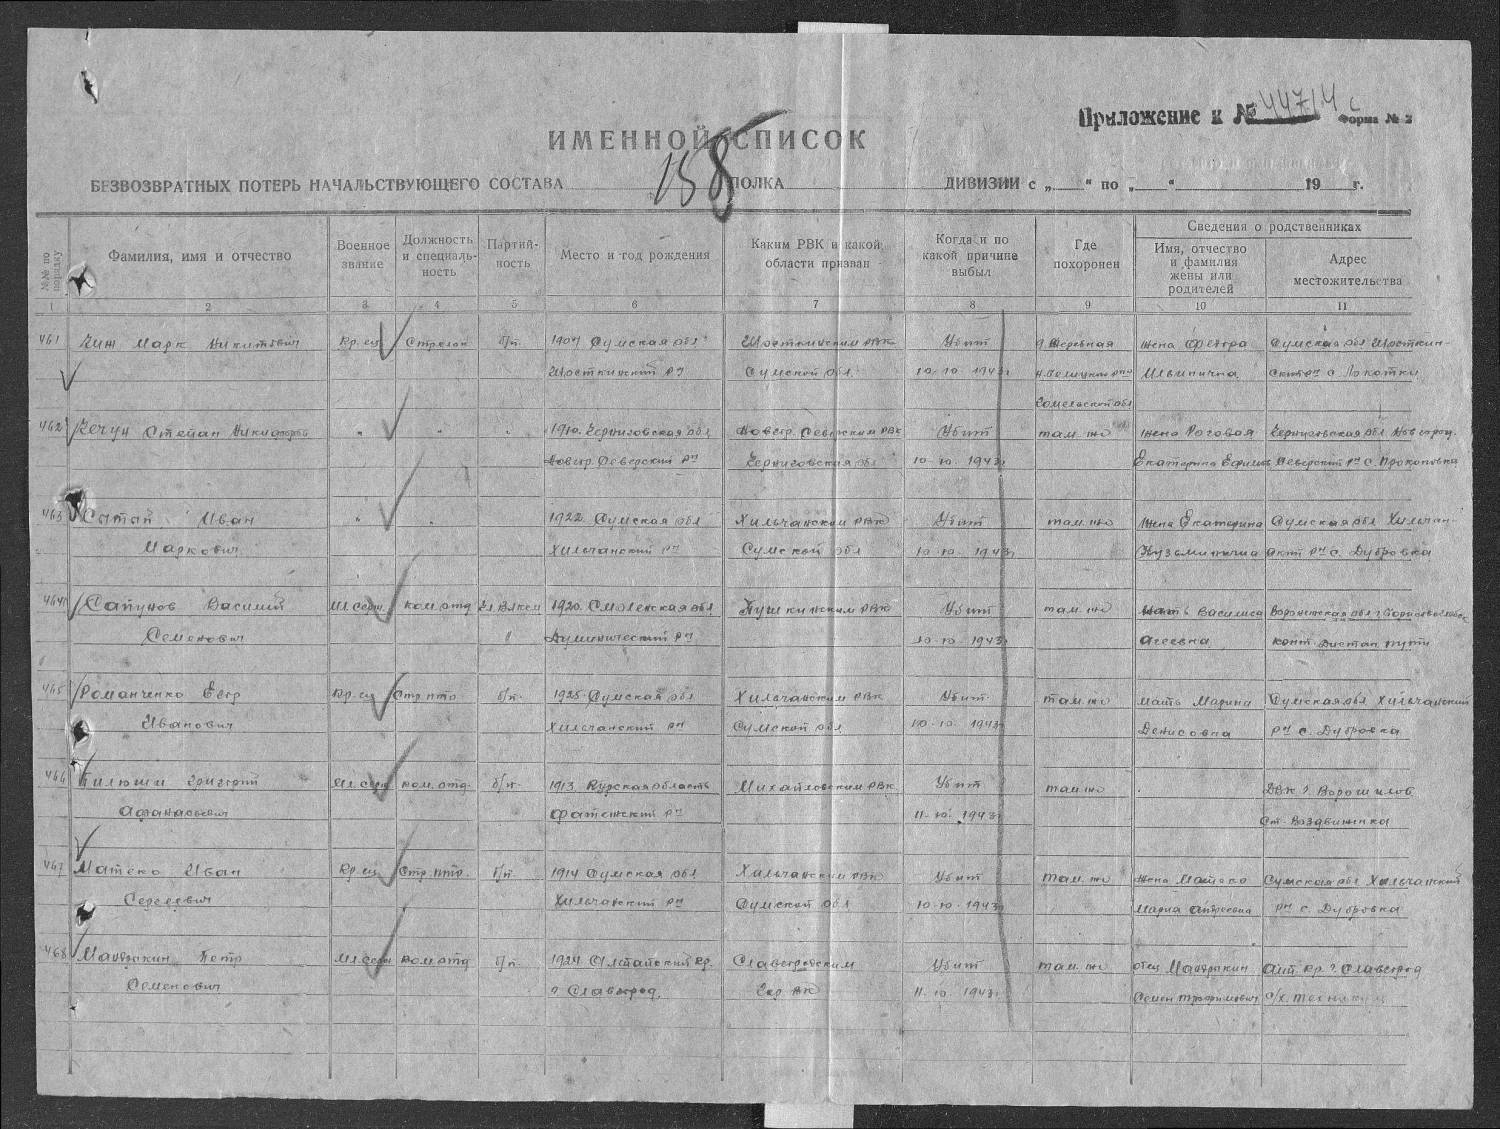 Приложение к № 44714 с Форма № 2
ИМЕННОЙ СПИСОК
158
БЕЗВОЗВРАТНЫХ ПОТЕРЬ НАЧАЛЬСТВУЮЩЕГО СОСТАВА ПОЛКА ДИВИЗИИ с „ “ по „ “ 19 г.
№№ по порядку
Фамилия, имя и отчество
Военное звание
Должность и специальность
Партийность
Место и год рождения
Каким РВК и какой области призван
Когда и по какой причине выбыл
Где похоронен
Сведения о родственниках
Имя, отчество и фамилия жены или родителей
Адрес местожительства
1 2 3 4 5 6 7 8 9 10 11
461 Чиж Марк Никитович Кр.ец Стрелок б/п. 1907 Сумская обл Шосткинским РВК Убит жена Сумская обл Шосткин-
Шосткинский рн Сумской обл. 10.10.1943г скит рн с Локотки
Гомельской обл
462 Кечун Степан " " " 1910. Черниговская обл Новгр. Северским РВК Убит там.же жена Роговая Черниговская обл Новгород
Новгр. Северский рн Черниговская обл 10.10.1943г Екатерина Ефимов Северский рн с. Прокоповка
463 Сытай Иван " " 1922 Сумская обл Хильчанским РВК Убит там.же Жена Екатерина Сумская обл Хильчан-
Маркович Хильчанский рн Сумской обл 10.10.1943г Кузьминична рн с. Дубровка
464 Сапунов Василий Мл.серж. ком.отд 1920. Смоленская обл Пушкинским РВК Убит там.же мать Василиса Воронежская обл г.
Семенович Думинический рн 10.10.1943г Агеевна конт. Дистан. пути
465 Романченко Егор Кр.ец Стр.птр. б/п. 1925. Сумская обл Хильчанским РВК Убит там.же мать Марина Сумская обл Хильчанский
Иванович Хильчанский рн Сумской обл 10.10.1943г Денисовна рн с. Дубровка
466 Григорий Мл.серж ком.отд. б/п. 1913 Курская область Михайловским РВК Убит там.же ДВК г. Ворошилов
Афанасьевич Фатежский рн 11.10.1943г ст. Воздвиженка
467 Матеко Иван Кр.ец Стр.птр. б/п. 1914 Сумская обл Хильчанским РВК Убит там.же жена Матеко Сумская обл Хильчанский
Сергеевич Хильчанский рн Сумской обл 10.10.1943г Мария рн с. Дубровка
468 Петр Мл.серж ком.отд б/п. 1924 Алтайский кр. Славгородским Убит там.же отец Алт. кр. г. Славгород
Семенович г Славгород. Гор ВК 11.10.1943г Семен Трофимович с/х. техникум